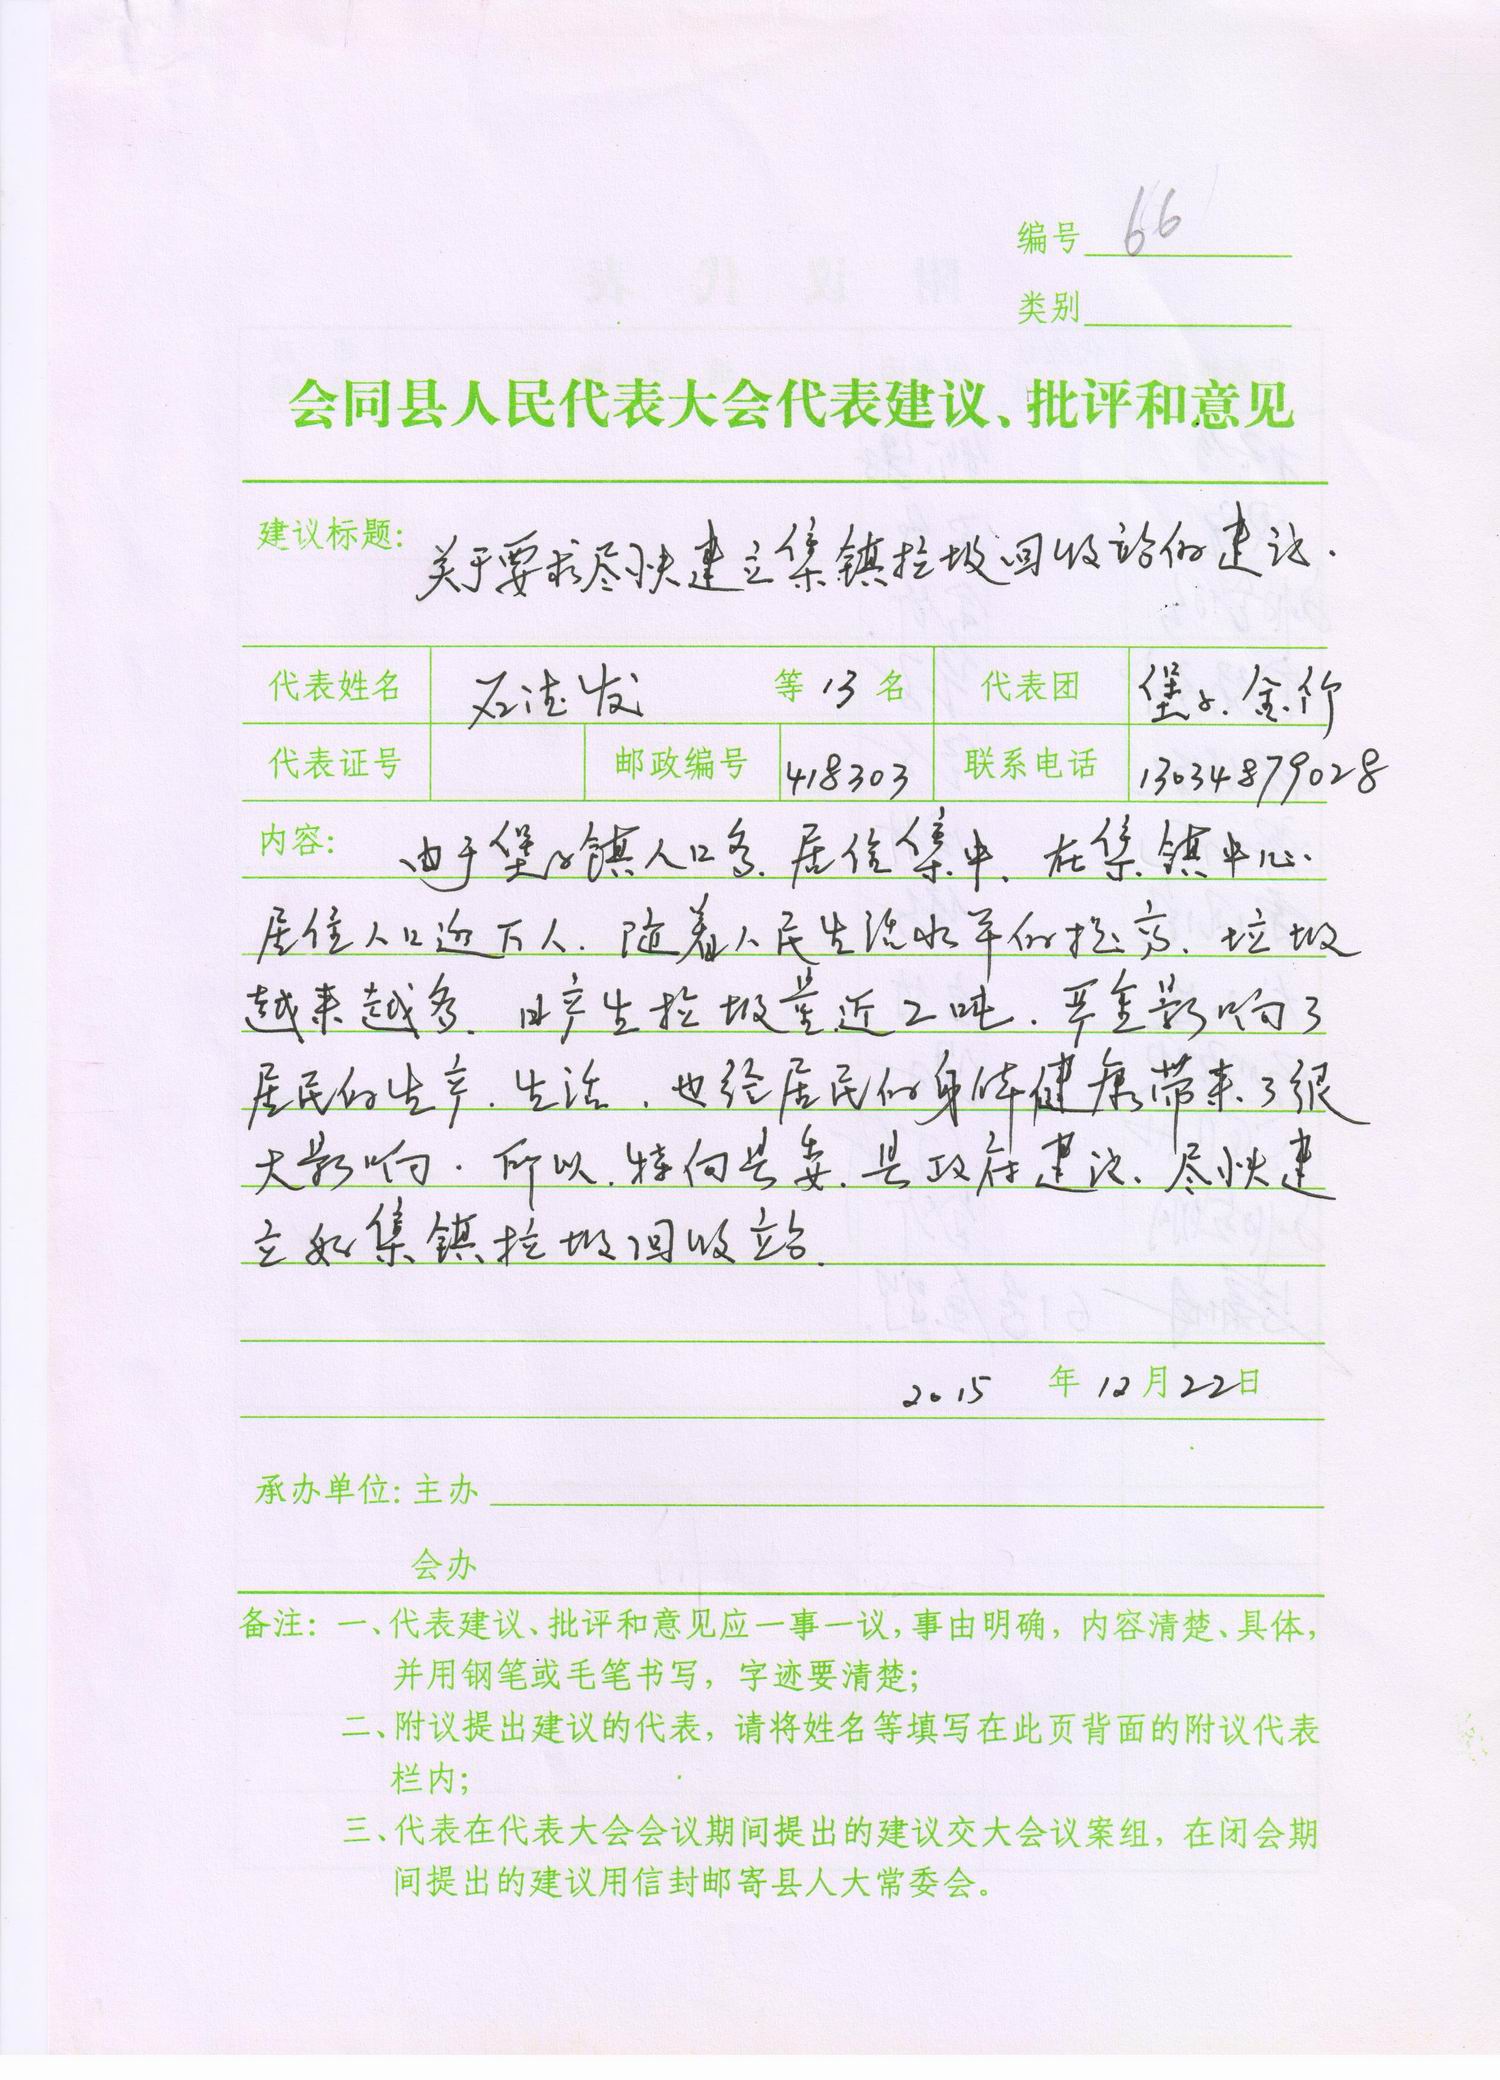 编号 66
类别
会同县人民代表大会代表建议、批评和意见
建议标题: 关于要求尽快建立集镇垃圾回收站的建议.
代表姓名 石 发 等 13 名 代表团 堡子.金竹
代表证号 邮政编号 418303 联系电话 13034879028
内容: 由于堡子镇人口多.居住集中.在集镇中心.
居住人口近万人.随着人民生活水平的提高.垃圾
越来越多.日产生垃圾量近2吨.严重影响了
居民的生产.生活.也给居民的身体健康带来了很
大影响.所以.特向县委.县政府建议.尽快建
立好集镇垃圾回收站.
2015 年 12 月 22 日
承办单位: 主办
会办
备注: 一、代表建议、批评和意见应一事一议,事由明确,内容清楚、具体,
并用钢笔或毛笔书写,字迹要清楚;
二、附议提出建议的代表,请将姓名等填写在此页背面的附议代表
栏内;
三、代表在代表大会会议期间提出的建议交大会议案组,在闭会期
间提出的建议用信封邮寄县人大常委会。